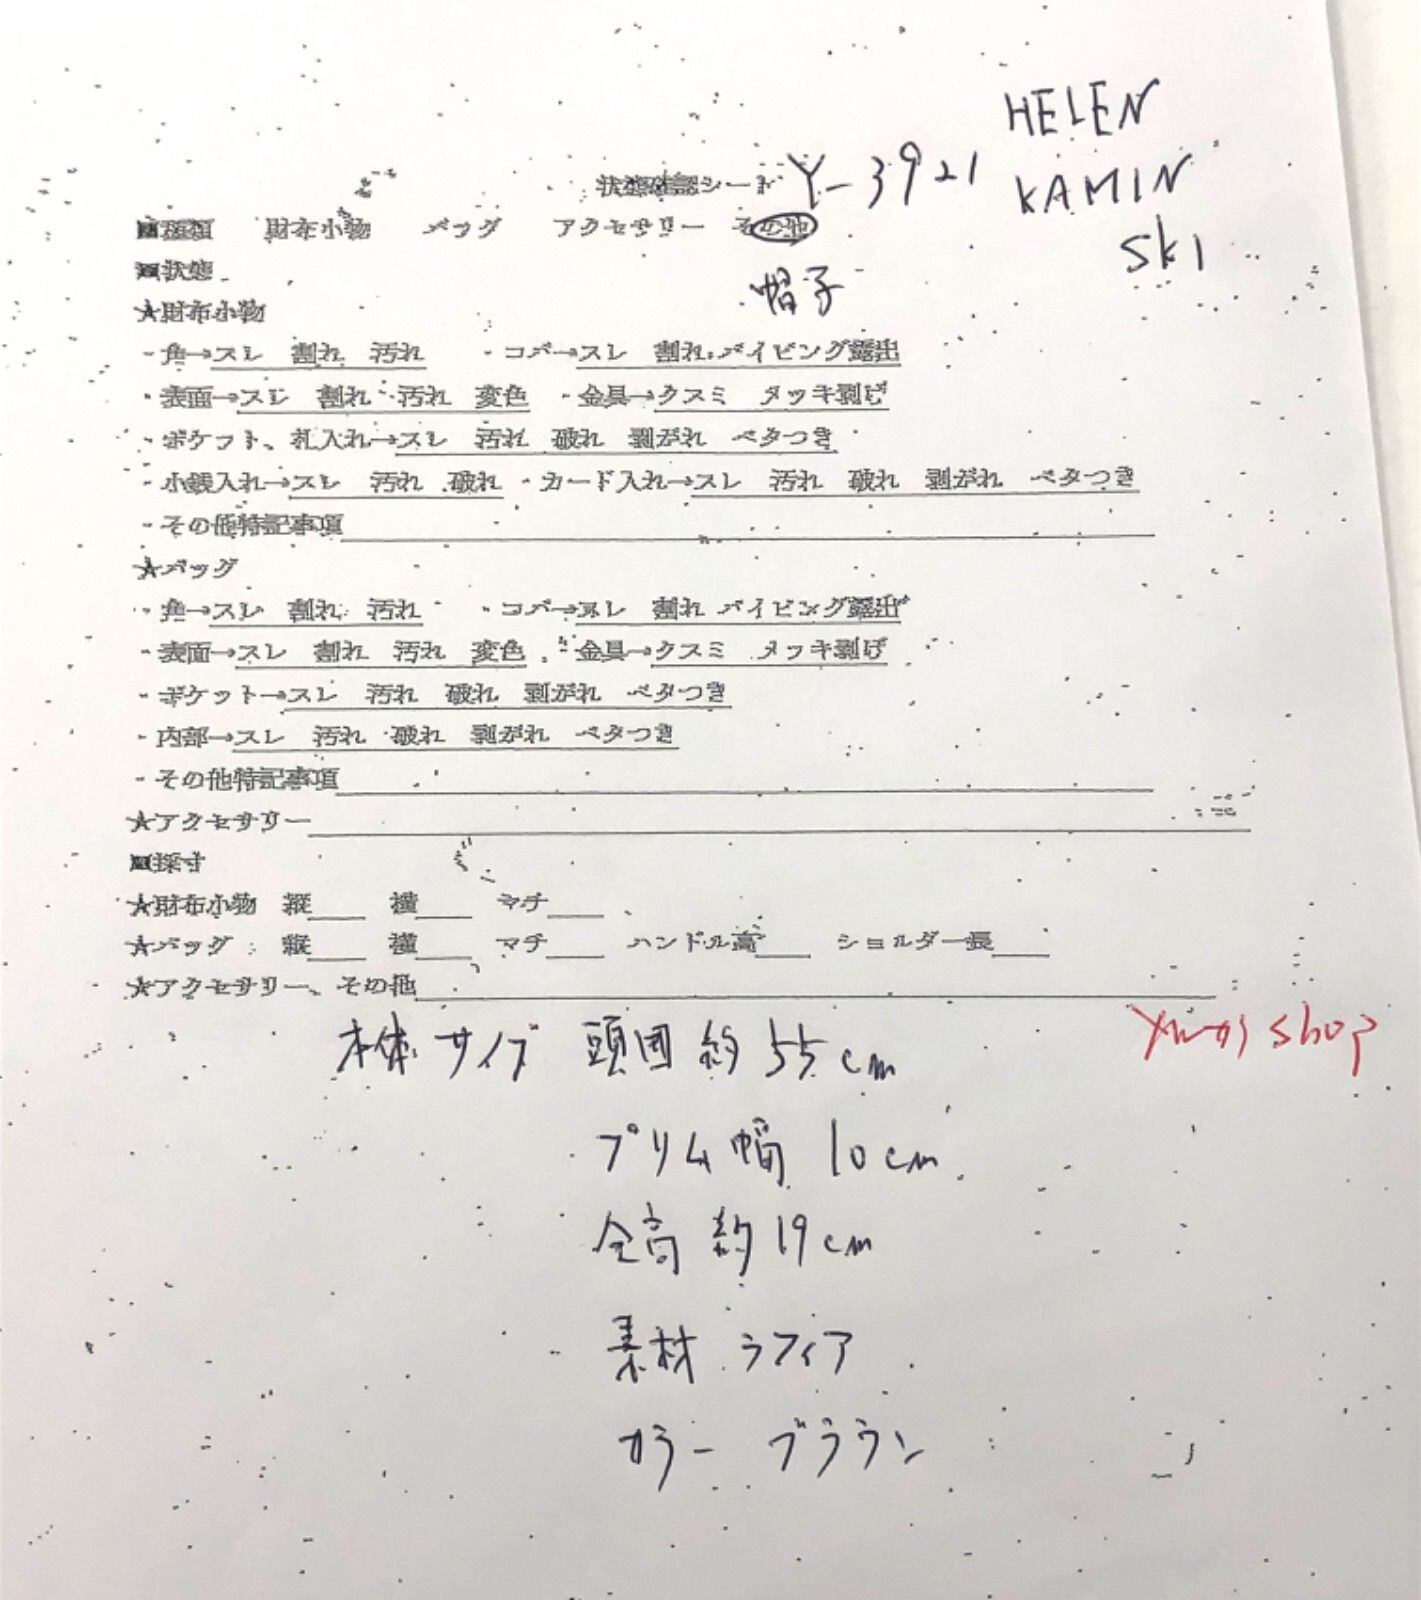 HELEN
KAMIN
SKI
状態確認シート Y-3921
■種類 財布小物 バッグ アクセサリー その他
■状態 帽子
★財布小物
・角→スレ 割れ 汚れ ・コバ→スレ 割れ パイピング露出
・表面→スレ 割れ 汚れ 変色 ・金具→クスミ メッキ剥げ
・ポケット、札入れ→スレ 汚れ 破れ 剥がれ ベタつき
・小銭入れ→スレ 汚れ 破れ ・カード入れ→スレ 汚れ 破れ 剥がれ ベタつき
・その他特記事項
★バッグ
・角→スレ 割れ 汚れ ・コバ→スレ 割れ パイピング露出
・表面→スレ 割れ 汚れ 変色 ・金具→クスミ メッキ剥げ
・ポケット→スレ 汚れ 破れ 剥がれ ベタつき
・内部→スレ 汚れ 破れ 剥がれ ベタつき
・その他特記事項
★アクセサリー
■採寸
★財布小物 縦 横 マチ
★バッグ 縦 横 マチ ハンドル高 ショルダー長
★アクセサリー、その他
shop
本体サイズ 頭囲約55cm
ブリム幅 10cm
全高 約19cm
素材 ラフィア
カラー ブラウン